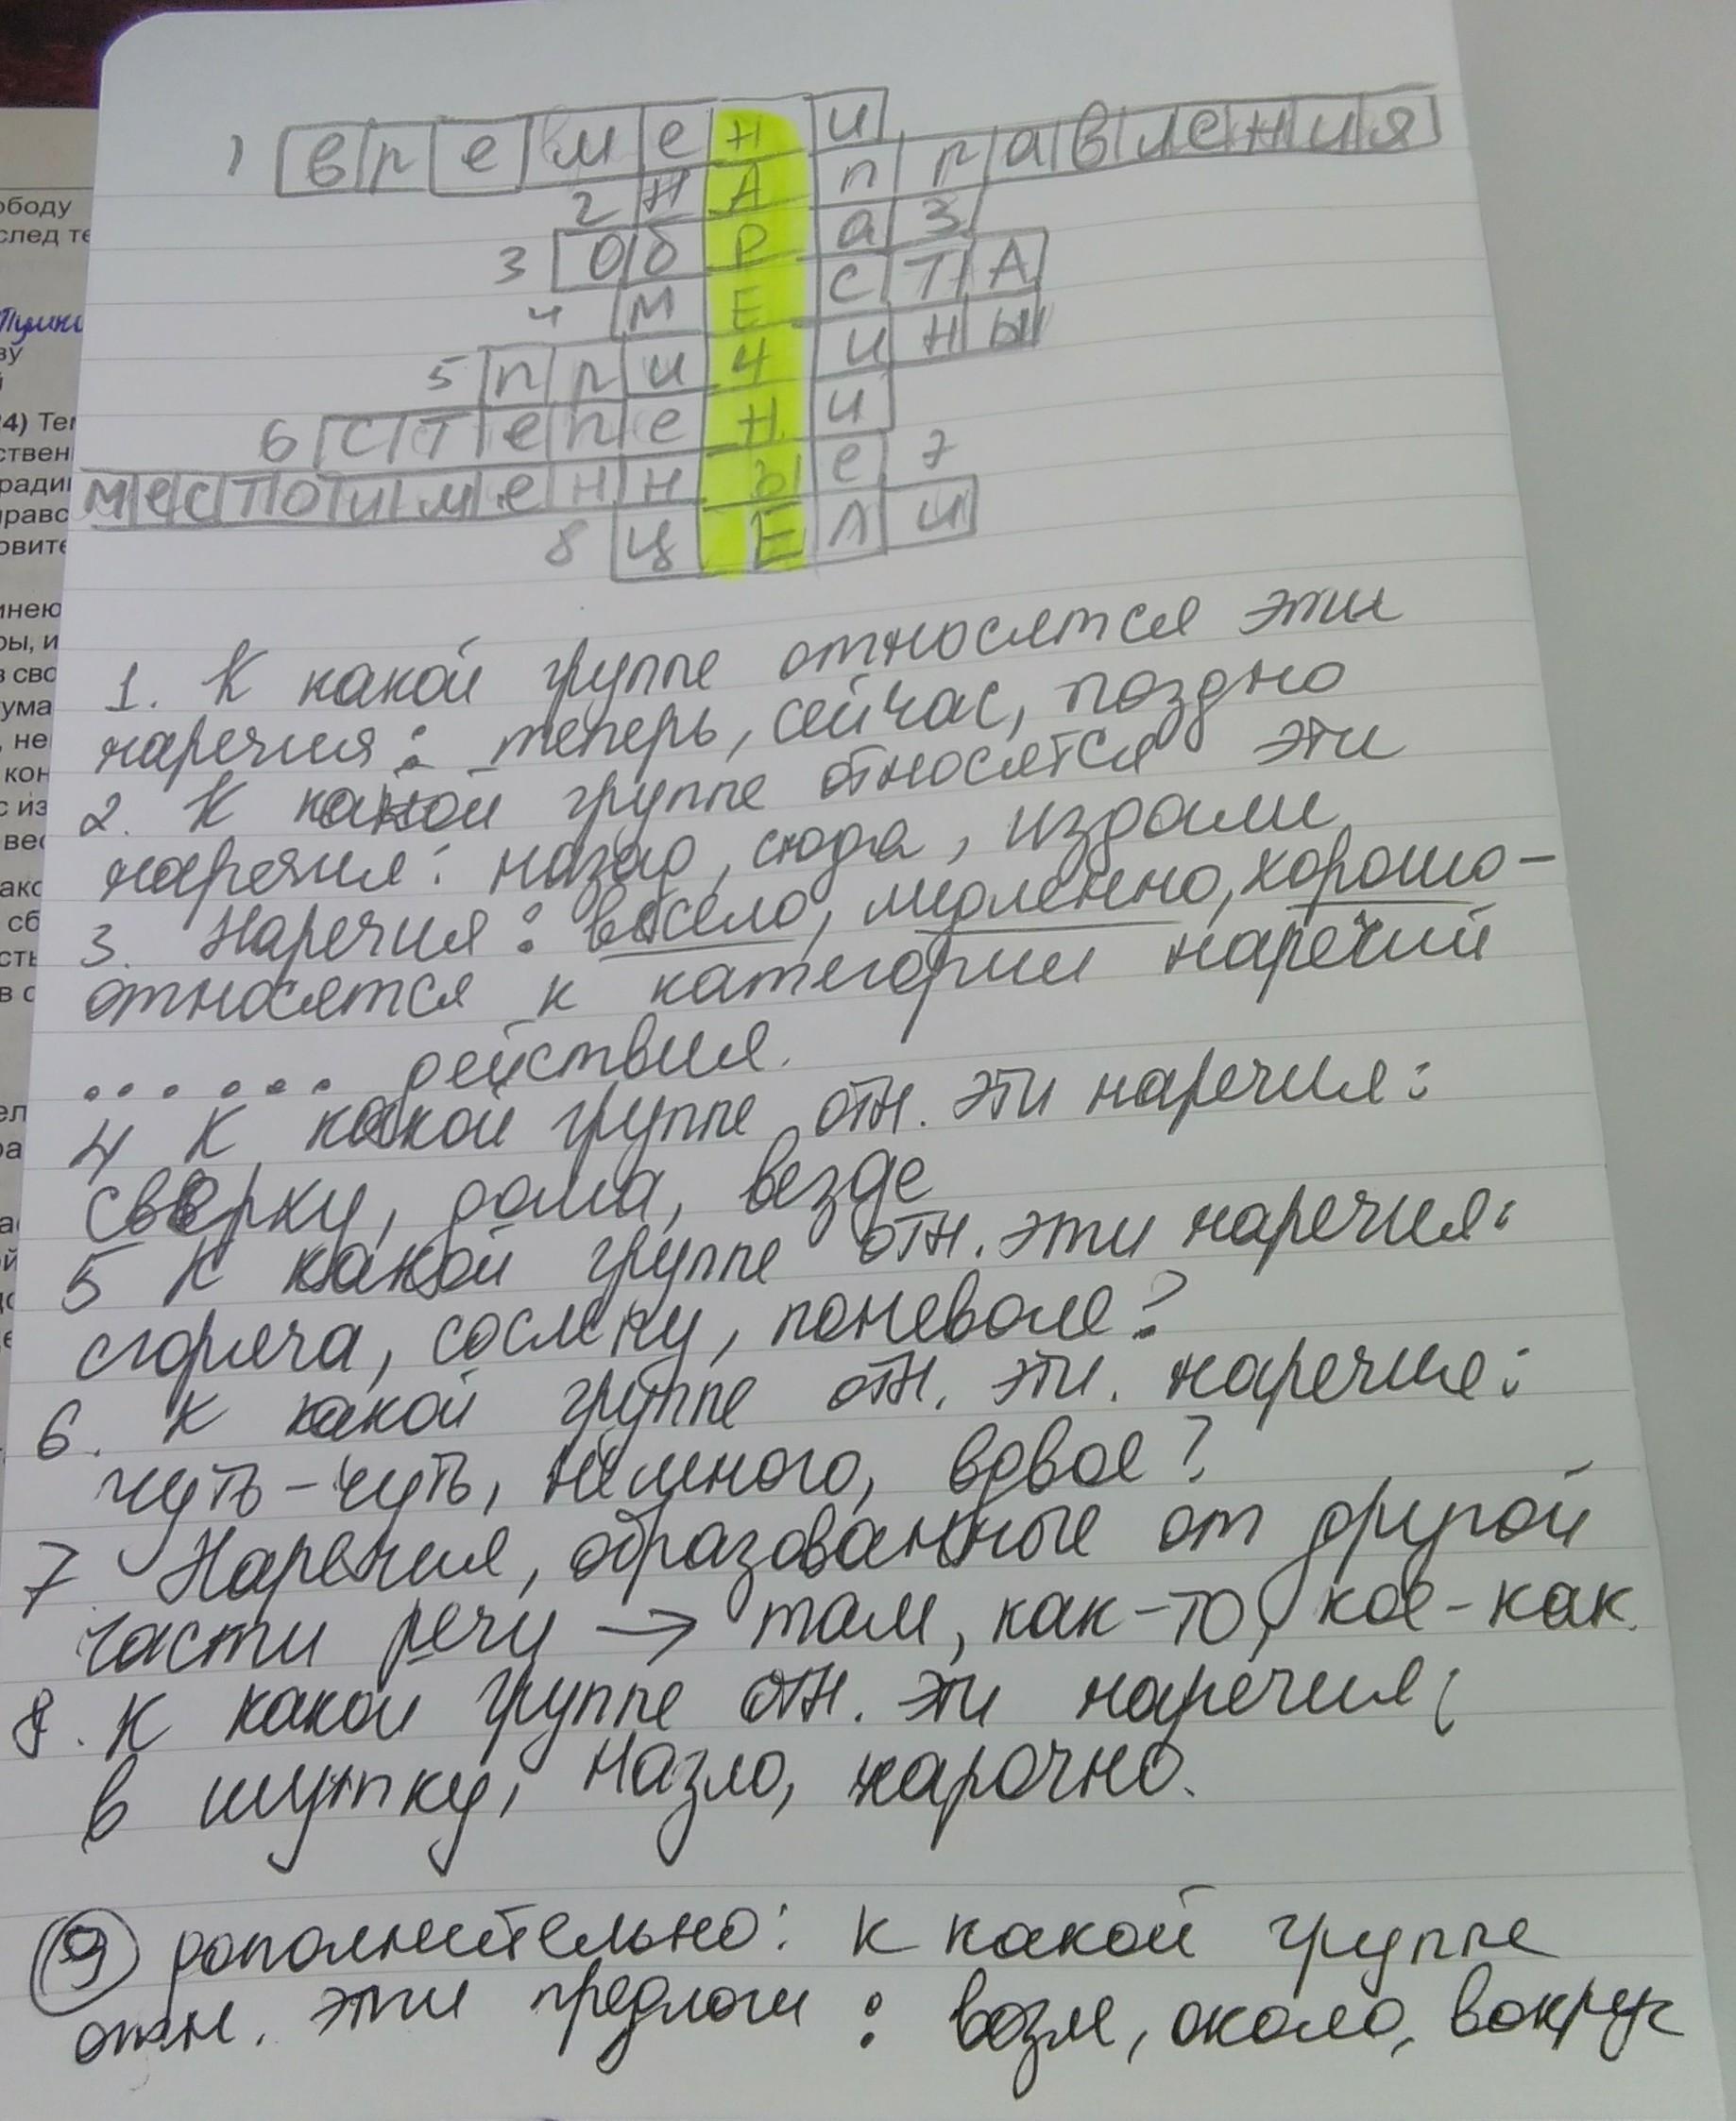 1 времени
2 НАправления
3 ОбРаз
4 МЕСТА
5 причины
6 степени
местоименные 7
8 цЕли
1. К какой группе относятся эти
наречия: теперь, сейчас, поздно
2. К какой группе относятся эти
наречия: назад, сюда, издали
3. Наречия: весело, медленно, хорошо –
относятся к категории наречий
...... действия.
4 К какой группе отн. эти наречия:
сверху, дома, везде
5 К какой группе отн. эти наречия:
сгоряча, сослепу, поневоле?
6. К какой группе отн. эти. наречия:
чуть-чуть, немного, вдвое?
7 Наречия, образованные от другой
части речи → там, как-то, кое-как.
8. К какой группе отн. эти наречия:
в шутку, назло, нарочно.
9 дополнительно: к какой группе
отн. эти предлоги: возле, около, вокруг
ободу
след те
зу
24) Тег
ствен
ради
нравс
овите
инею
ры, и
в сво
ума
, не
кон
с из
вес
сб
сть
в с